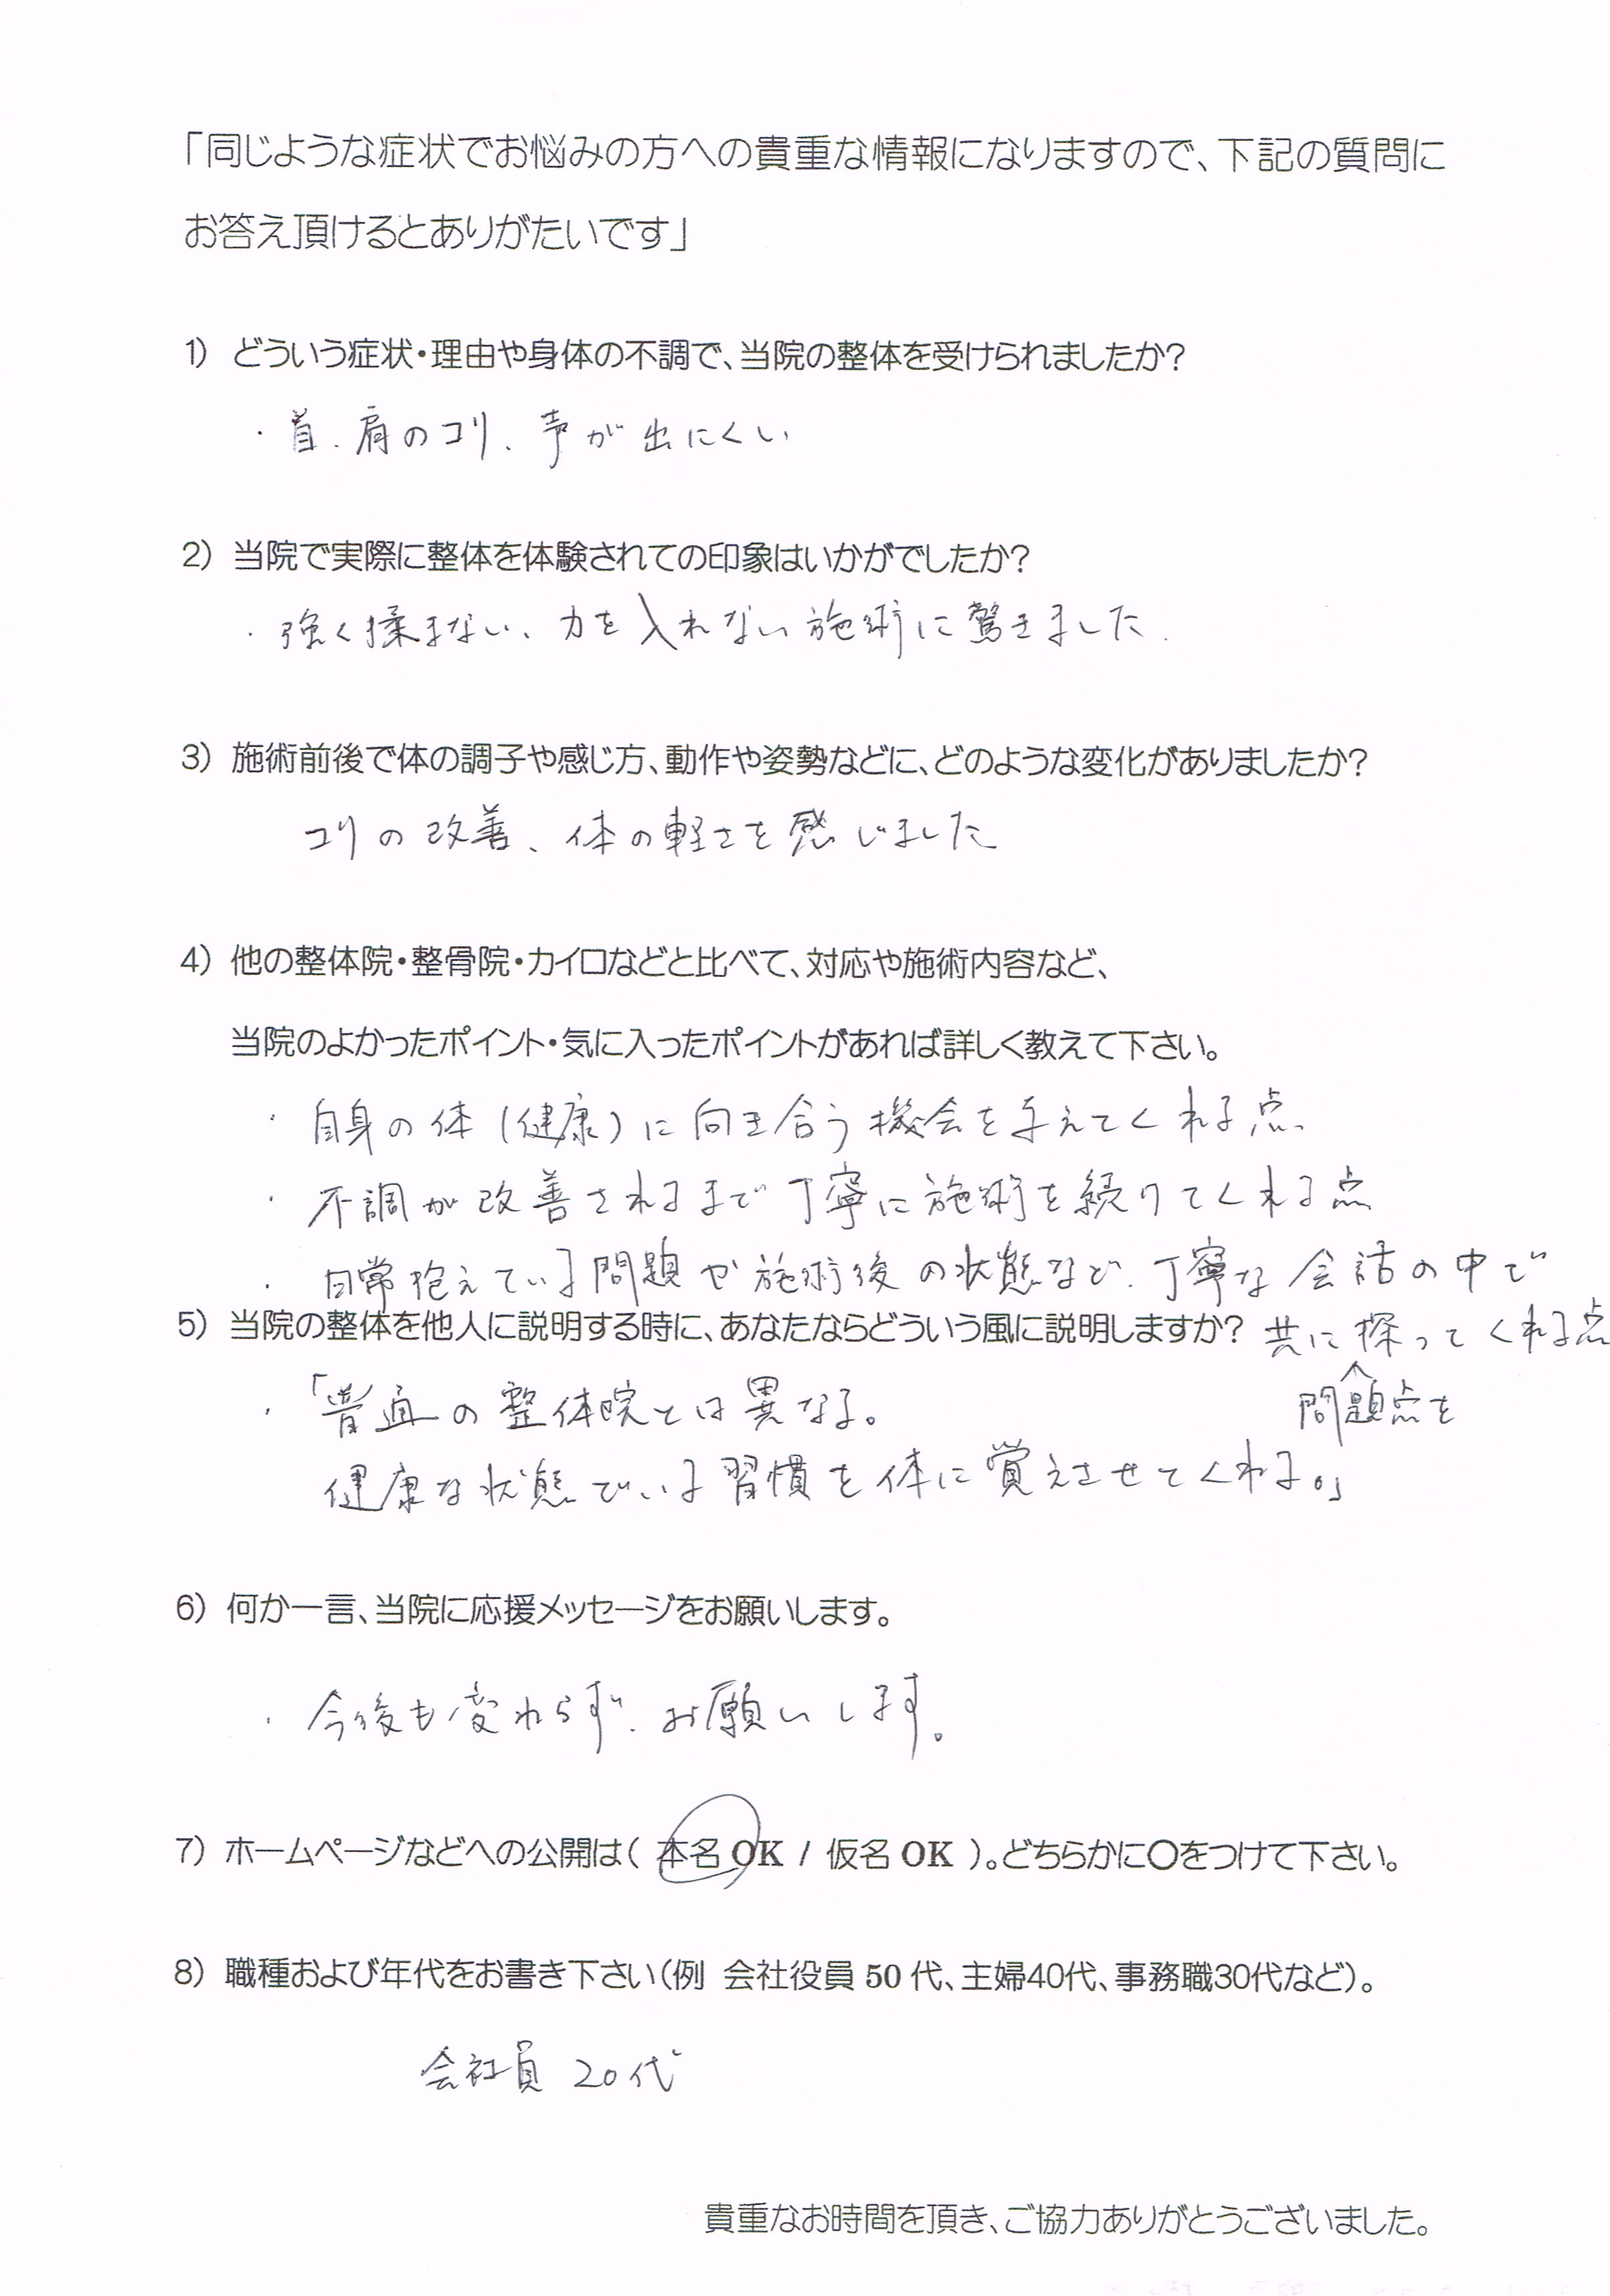 「同じような症状でお悩みの方への貴重な情報になりますので、下記の質問に
お答え頂けるとありがたいです」
1） どういう症状・理由や身体の不調で、当院の整体を受けられましたか？
・首、肩のコリ、声が出にくい
2） 当院で実際に整体を体験されての印象はいかがでしたか？
・強く揉まない、力を入れない施術に驚きました.
3） 施術前後で体の調子や感じ方、動作や姿勢などに、どのような変化がありましたか？
コリの改善、体の軽さを感じました
4） 他の整体院・整骨院・カイロなどと比べて、対応や施術内容など、
当院のよかったポイント・気に入ったポイントがあれば詳しく教えて下さい。
・自身の体（健康）に向き合う機会を与えてくれる点、
・不調が改善されるまで丁寧に施術を続けてくれる点
・日常抱えている問題や施術後の状態など、丁寧な会話の中で
共に探ってくれる点
問題点を
5） 当院の整体を他人に説明する時に、あなたならどういう風に説明しますか？
・「普通の整体院とは異なる。
健康な状態でいる習慣を体に覚えさせてくれる。」
6） 何か一言、当院に応援メッセージをお願いします。
・今後も変わらず、お願いします。
7） ホームページなどへの公開は（ 本名 OK / 仮名 OK ）。どちらかに〇をつけて下さい。
8） 職種および年代をお書き下さい（例 会社役員 50 代、主婦40代、事務職30代など）。
会社員 20代
貴重なお時間を頂き、ご協力ありがとうございました。